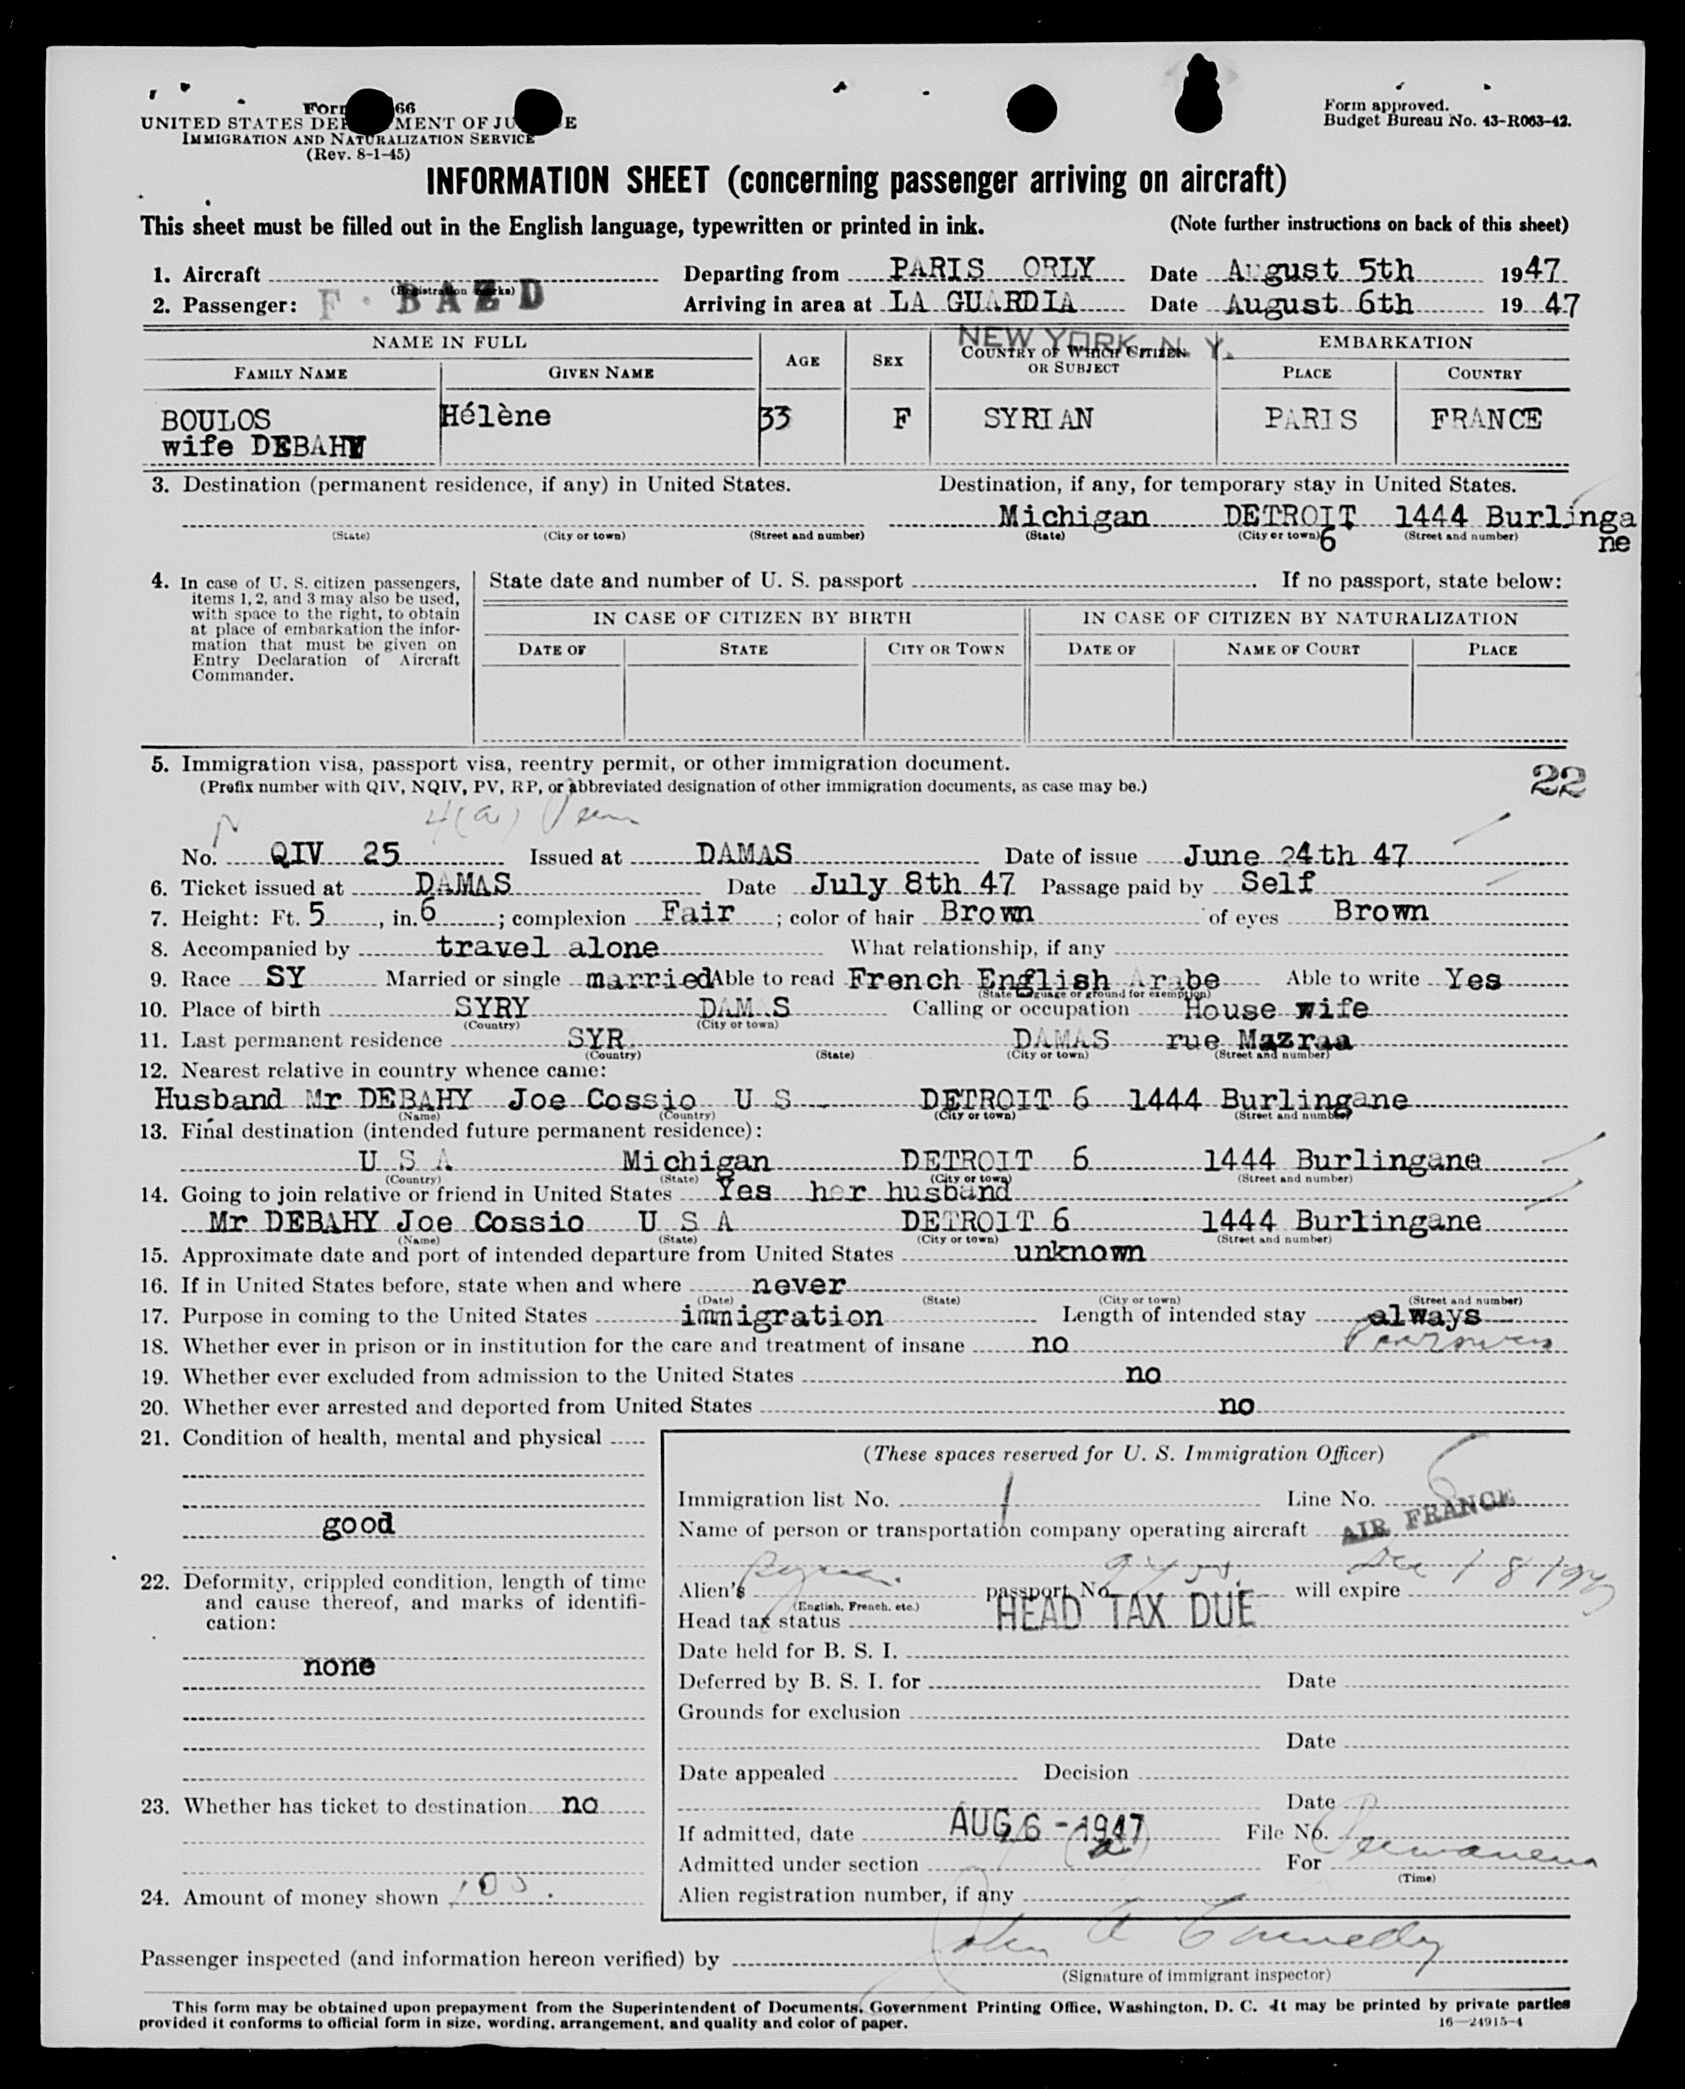 Form 66
UNITED STATES DEPARTMENT OF JUSTICE
IMMIGRATION AND NATURALIZATION SERVICE
(Rev. 8-1-45)
Form approved.
Budget Bureau No. 43-R063-42.
INFORMATION SHEET (concerning passenger arriving on aircraft)
This sheet must be filled out in the English language, typewritten or printed in ink. (Note further instructions on back of this sheet)
1. Aircraft Departing from PARIS ORLY Date August 5th 1947
(Registration marks)
2. Passenger: F-BAZD Arriving in area at LA GUARDIA Date August 6th 1947
NEW YORK, N. Y.
NAME IN FULL AGE SEX COUNTRY OF WHICH CITIZEN OR SUBJECT EMBARKATION
FAMILY NAME GIVEN NAME PLACE COUNTRY
BOULOS Hélène 33 F SYRIAN PARIS FRANCE
wife DEBAHY
3. Destination (permanent residence, if any) in United States. Destination, if any, for temporary stay in United States.
Michigan DETROIT 1444 Burlinga
(State) (City or town) (Street and number) (State) (City or town) 6 (Street and number) ne
4. In case of U. S. citizen passengers, items 1, 2, and 3 may also be used, with space to the right, to obtain at place of embarkation the information that must be given on Entry Declaration of Aircraft Commander.
State date and number of U. S. passport If no passport, state below:
IN CASE OF CITIZEN BY BIRTH IN CASE OF CITIZEN BY NATURALIZATION
DATE OF STATE CITY OR TOWN DATE OF NAME OF COURT PLACE
5. Immigration visa, passport visa, reentry permit, or other immigration document.
(Prefix number with QIV, NQIV, PV, RP, or abbreviated designation of other immigration documents, as case may be.) 22
N 4(a)
No. QIV 25 Issued at DAMAS Date of issue June 24th 47
6. Ticket issued at DAMAS Date July 8th 47 Passage paid by Self
7. Height: Ft. 5, in. 6; complexion Fair; color of hair Brown of eyes Brown
8. Accompanied by travel alone What relationship, if any
9. Race SY Married or single married Able to read French English Arabe Able to write Yes
(State language or ground for exemption)
10. Place of birth SYRY DAMAS Calling or occupation House wife
(Country) (City or town)
11. Last permanent residence SYR. DAMAS rue Mazraa
(Country) (State) (City or town) (Street and number)
12. Nearest relative in country whence came:
Husband Mr DEBAHY Joe Cossio U S DETROIT 6 1444 Burlingane
(Name) (Country) (City or town) (Street and number)
13. Final destination (intended future permanent residence):
U S A Michigan DETROIT 6 1444 Burlingane
(Country) (State) (City or town) (Street and number)
14. Going to join relative or friend in United States Yes her husband
Mr DEBAHY Joe Cossio U S A DETROIT 6 1444 Burlingane
(Name) (State) (City or town) (Street and number)
15. Approximate date and port of intended departure from United States unknown
16. If in United States before, state when and where never
(Date) (State) (City or town) (Street and number)
17. Purpose in coming to the United States immigration Length of intended stay always
18. Whether ever in prison or in institution for the care and treatment of insane no
19. Whether ever excluded from admission to the United States no
20. Whether ever arrested and deported from United States no
21. Condition of health, mental and physical
good
22. Deformity, crippled condition, length of time and cause thereof, and marks of identification:
none
23. Whether has ticket to destination no
24. Amount of money shown 100.
(These spaces reserved for U. S. Immigration Officer)
Immigration list No. 1 Line No. 6
Name of person or transportation company operating aircraft AIR FRANCE
Alien's passport No. will expire
(English, French, etc.)
Head tax status HEAD TAX DUE
Date held for B. S. I.
Deferred by B. S. I. for Date
Grounds for exclusion
Date
Date appealed Decision
Date
If admitted, date AUG 6 - 1947 File No.
Admitted under section 4(a) For Permanent
(Time)
Alien registration number, if any
Passenger inspected (and information hereon verified) by John A Connelly
(Signature of immigrant inspector)
This form may be obtained upon prepayment from the Superintendent of Documents, Government Printing Office, Washington, D. C. It may be printed by private parties
provided it conforms to official form in size, wording, arrangement, and quality and color of paper.
16—24915-4